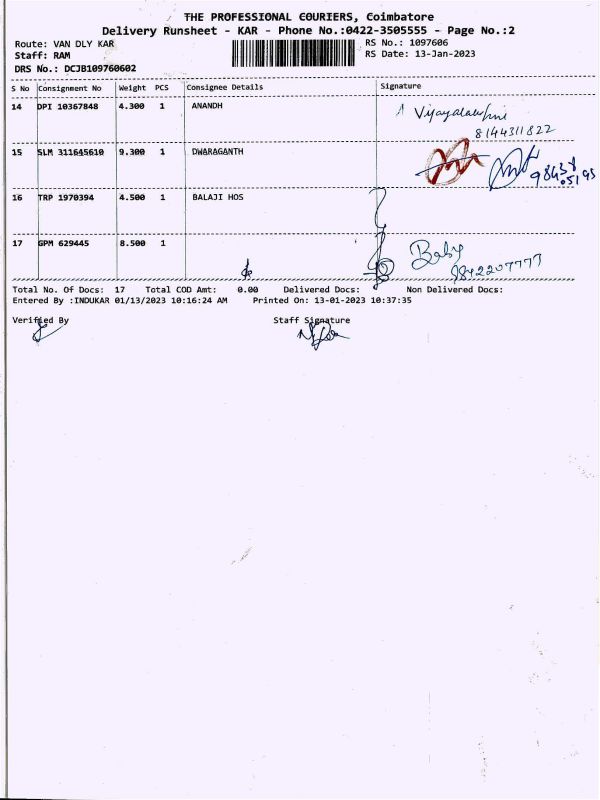 THE PROFESSIONAL COURIERS, Coimbatore
Delivery Runsheet - KAR - Phone No.:0422-3505555 - Page No.:2
Route: VAN DLY KAR RS No.: 1097606
Staff: RAM RS Date: 13-Jan-2023
DRS No.: DCJB109760602
S No Consignment No Weight PCS Consignee Details Signature
14 DPI 10367848 4.300 1 ANANDH
8144311822
15 SLM 311645610 9.300 1 DWARAGANTH
16 TRP 1970394 4.500 1 BALAJI HOS
17 GPM 629445 8.500 1 Baby
9842207777
Total No. Of Docs: 17 Total COD Amt: 0.00 Delivered Docs: Non Delivered Docs:
Entered By :INDUKAR 01/13/2023 10:16:24 AM Printed On: 13-01-2023 10:37:35
Verified By Staff Signature